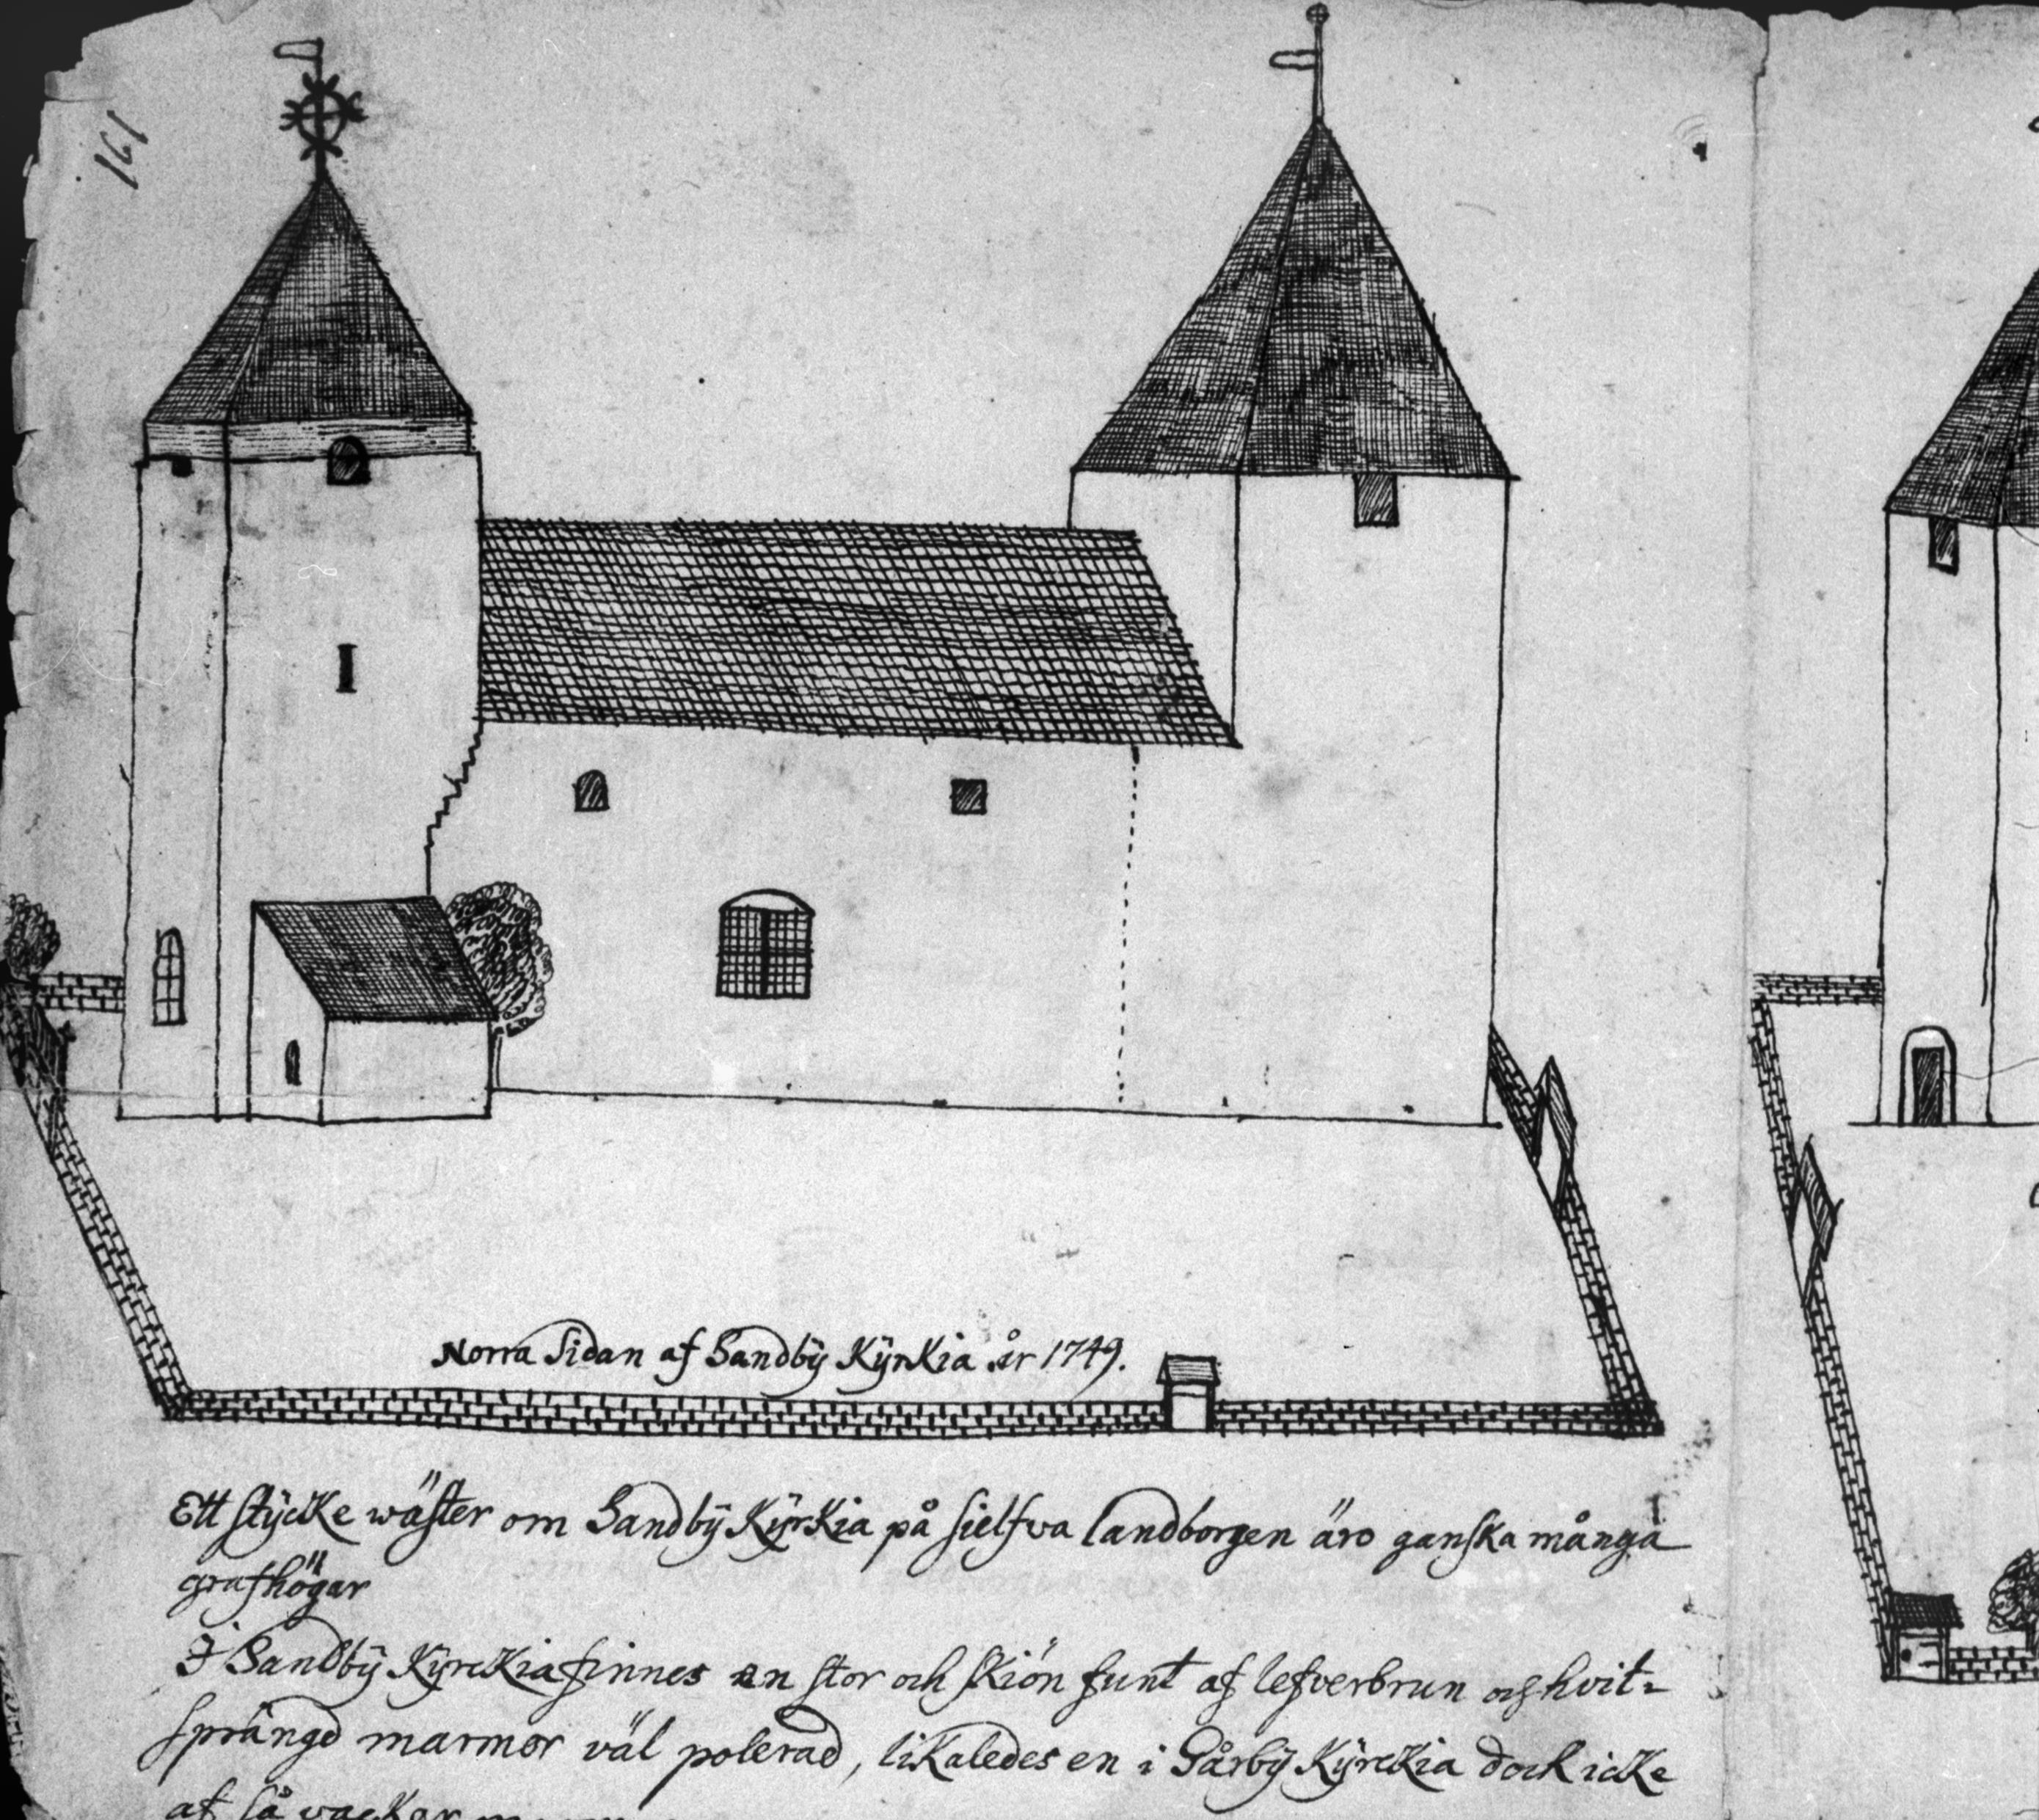 161
Norra Sidan af Sandbÿ Kÿrkia år 1749.
Ett stÿcke wäster om Sandbÿ Kÿrkia på sielfwa landborgen äro ganska många
grafhögar
I Sandbÿ Kÿrckia finnes en stor och skiön funt af lefverbrun och hvit-
sprängd marmor väl polerad, likaledes en i Gårbÿ Kÿrckia doch icke
af så vacker